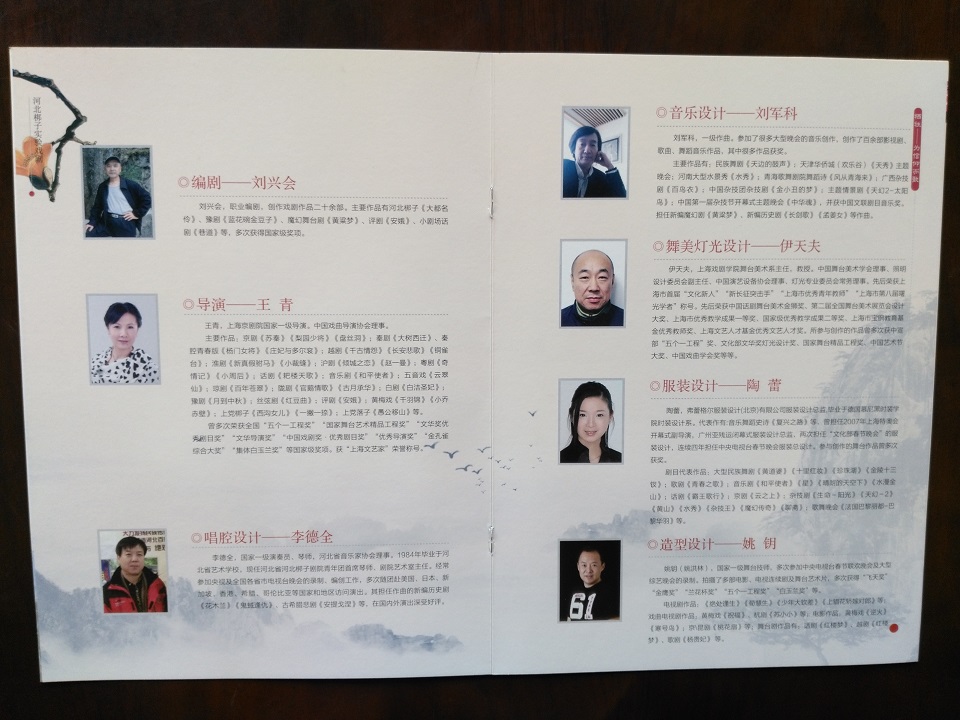 河北梆子实验剧
编剧——刘兴会
刘兴会，职业编剧，创作戏剧作品二十余部。主要作品有河北梆子《大都名
伶》、豫剧《蓝花碗金豆子》、魔幻舞台剧《黄粱梦》、评剧《安娥》、小剧场话
剧《巷道》等，多次获得国家级奖项。
导演——王 青
王青，上海京剧院国家一级导演。中国戏曲导演协会理事。
主要作品，京剧《苏秦》《梨园少将》《盘丝洞》；秦剧《大树西迁》、秦
腔青春版《杨门女将》《庄妃与多尔衮》；越剧《千古情怨》《长安悲歌》《铜雀
台》；淮剧《新真假驸马》《小裁缝》；沪剧《倾城之恋》《赵一曼》；粤剧《奇
情记》《小周后》；话剧《耙耧天歌》；音乐剧《和平使者》；五音戏《云翠
仙》；琼剧《百年苍翠》；陇剧《官鹅情歌》《古月承华》；白剧《白洁圣妃》；
豫剧《月到中秋》；丝弦剧《红豆曲》；评剧《安娥》；黄梅戏《千羽锦》《小乔
赤壁》；上党梆子《西沟女儿》《一撇一捺》；上党落子《愚公移山》等。
曾多次荣获全国“五个一工程奖”“国家舞台艺术精品工程奖”“文华奖优
秀剧目奖”“文华导演奖”“中国戏剧奖·优秀剧目奖”“优秀导演奖”“金孔雀
综合大奖”“集体白玉兰奖”等国家级奖项。获“上海文艺家”荣誉称号。
唱腔设计——李德全
李德全，国家一级演奏员、琴师，河北省音乐家协会理事。1984年毕业于河
北省艺术学校，现任河北省河北梆子剧院青年团首席琴师、剧院艺术室主任。经常
参加央视及全国各省市电视台晚会的录制、编创工作，多次随团赴美国、日本、新
加坡、香港、希腊、哥伦比亚等国家和地区访问演出。其担任作曲的新编历史剧
《花木兰》《鬼蜮遗仇》、古希腊悲剧《安提戈涅》等，在国内外演出深受好评。
音乐设计——刘军科
刘军科，一级作曲。参加了很多大型晚会的音乐创作，创作了百余部影视剧、
歌曲、舞蹈音乐作品，其中很多作品获奖。
主要作品有，民族舞剧《天边的鼓声》；天津华侨城（欢乐谷）《天秀》主题
晚会；河南大型水景秀《水秀》；青海歌舞剧院舞蹈诗《风从青海来》；广西杂技
剧《百鸟衣》；中国杂技团杂技剧《金小丑的梦》；主题情景剧《天幻2-太阳
鸟》；中国第一届杂技节开幕式主题晚会《中华魂》，并获中国文联剧目音乐奖。
担任新编魔幻剧《黄粱梦》、新编历史剧《长剑歌》《孟姜女》等作曲。
舞美灯光设计——伊天夫
伊天夫，上海戏剧学院舞台美术系主任、教授。中国舞台美术学会理事、照明
设计委员会副主任、中国演艺设备协会理事，灯光专业委员会常务理事。先后荣获上
海市首届“文化新人”“新长征突击手”“上海市优秀青年教师”“上海市第八届曙
光学者”称号。先后荣获中国话剧舞台美术金狮奖、第二届全国舞台美术展览会设计
大奖、上海市优秀教学成果一等奖、国家级优秀教学成果二等奖、上海市宝钢教育基
金优秀教师奖、上海文艺人才基金优秀文艺人才奖。所参与创作的作品曾多次获中宣
部“五个一工程”奖、文化部文华奖灯光设计奖、国家舞台精品工程奖、中国艺术节
大奖、中国戏曲学会奖等等。
服装设计——陶 蕾
陶蕾，弗蕾格尔服装设计(北京)有限公司服装设计总监,毕业于德国慕尼黑时装学
院时装设计系。代表作有:音乐舞蹈史诗《复兴之路》等，曾担任2007年上海特奥会
开幕式副导演，广州亚残运闭幕式服装设计总监，两次担任“文化部春节晚会”的服
装设计，连续四年担任中央电视台春节晚会服装总设计。参与创作的舞台作品曾多次
获奖。
剧目代表作品，大型民族舞剧《黄道婆》《十里红妆》《珍珠湖》《金陵十三
钗》；歌剧《青春之歌》；音乐剧《和平使者》《星》《晴朗的天空下》《水漫金
山》；话剧《霸王歌行》；京剧《云之上》；杂技剧《生命·阳光》《天幻-2》
《黄山》《水秀》《杂技王》《魔幻传奇》《黎婆》；歌舞晚会《法国巴黎丽都-巴
黎华羽》等。
造型设计——姚 钥
姚钥（姚洪林），国家一级舞台技师，多次参加中央电视台春节联欢晚会及大型
综艺晚会的录制，拍摄了多部电影、电视连续剧及舞台艺术片，多次获得“飞天奖”
“金鹰奖”“兰花杯奖”“五个一工程奖”“白玉兰奖”等。